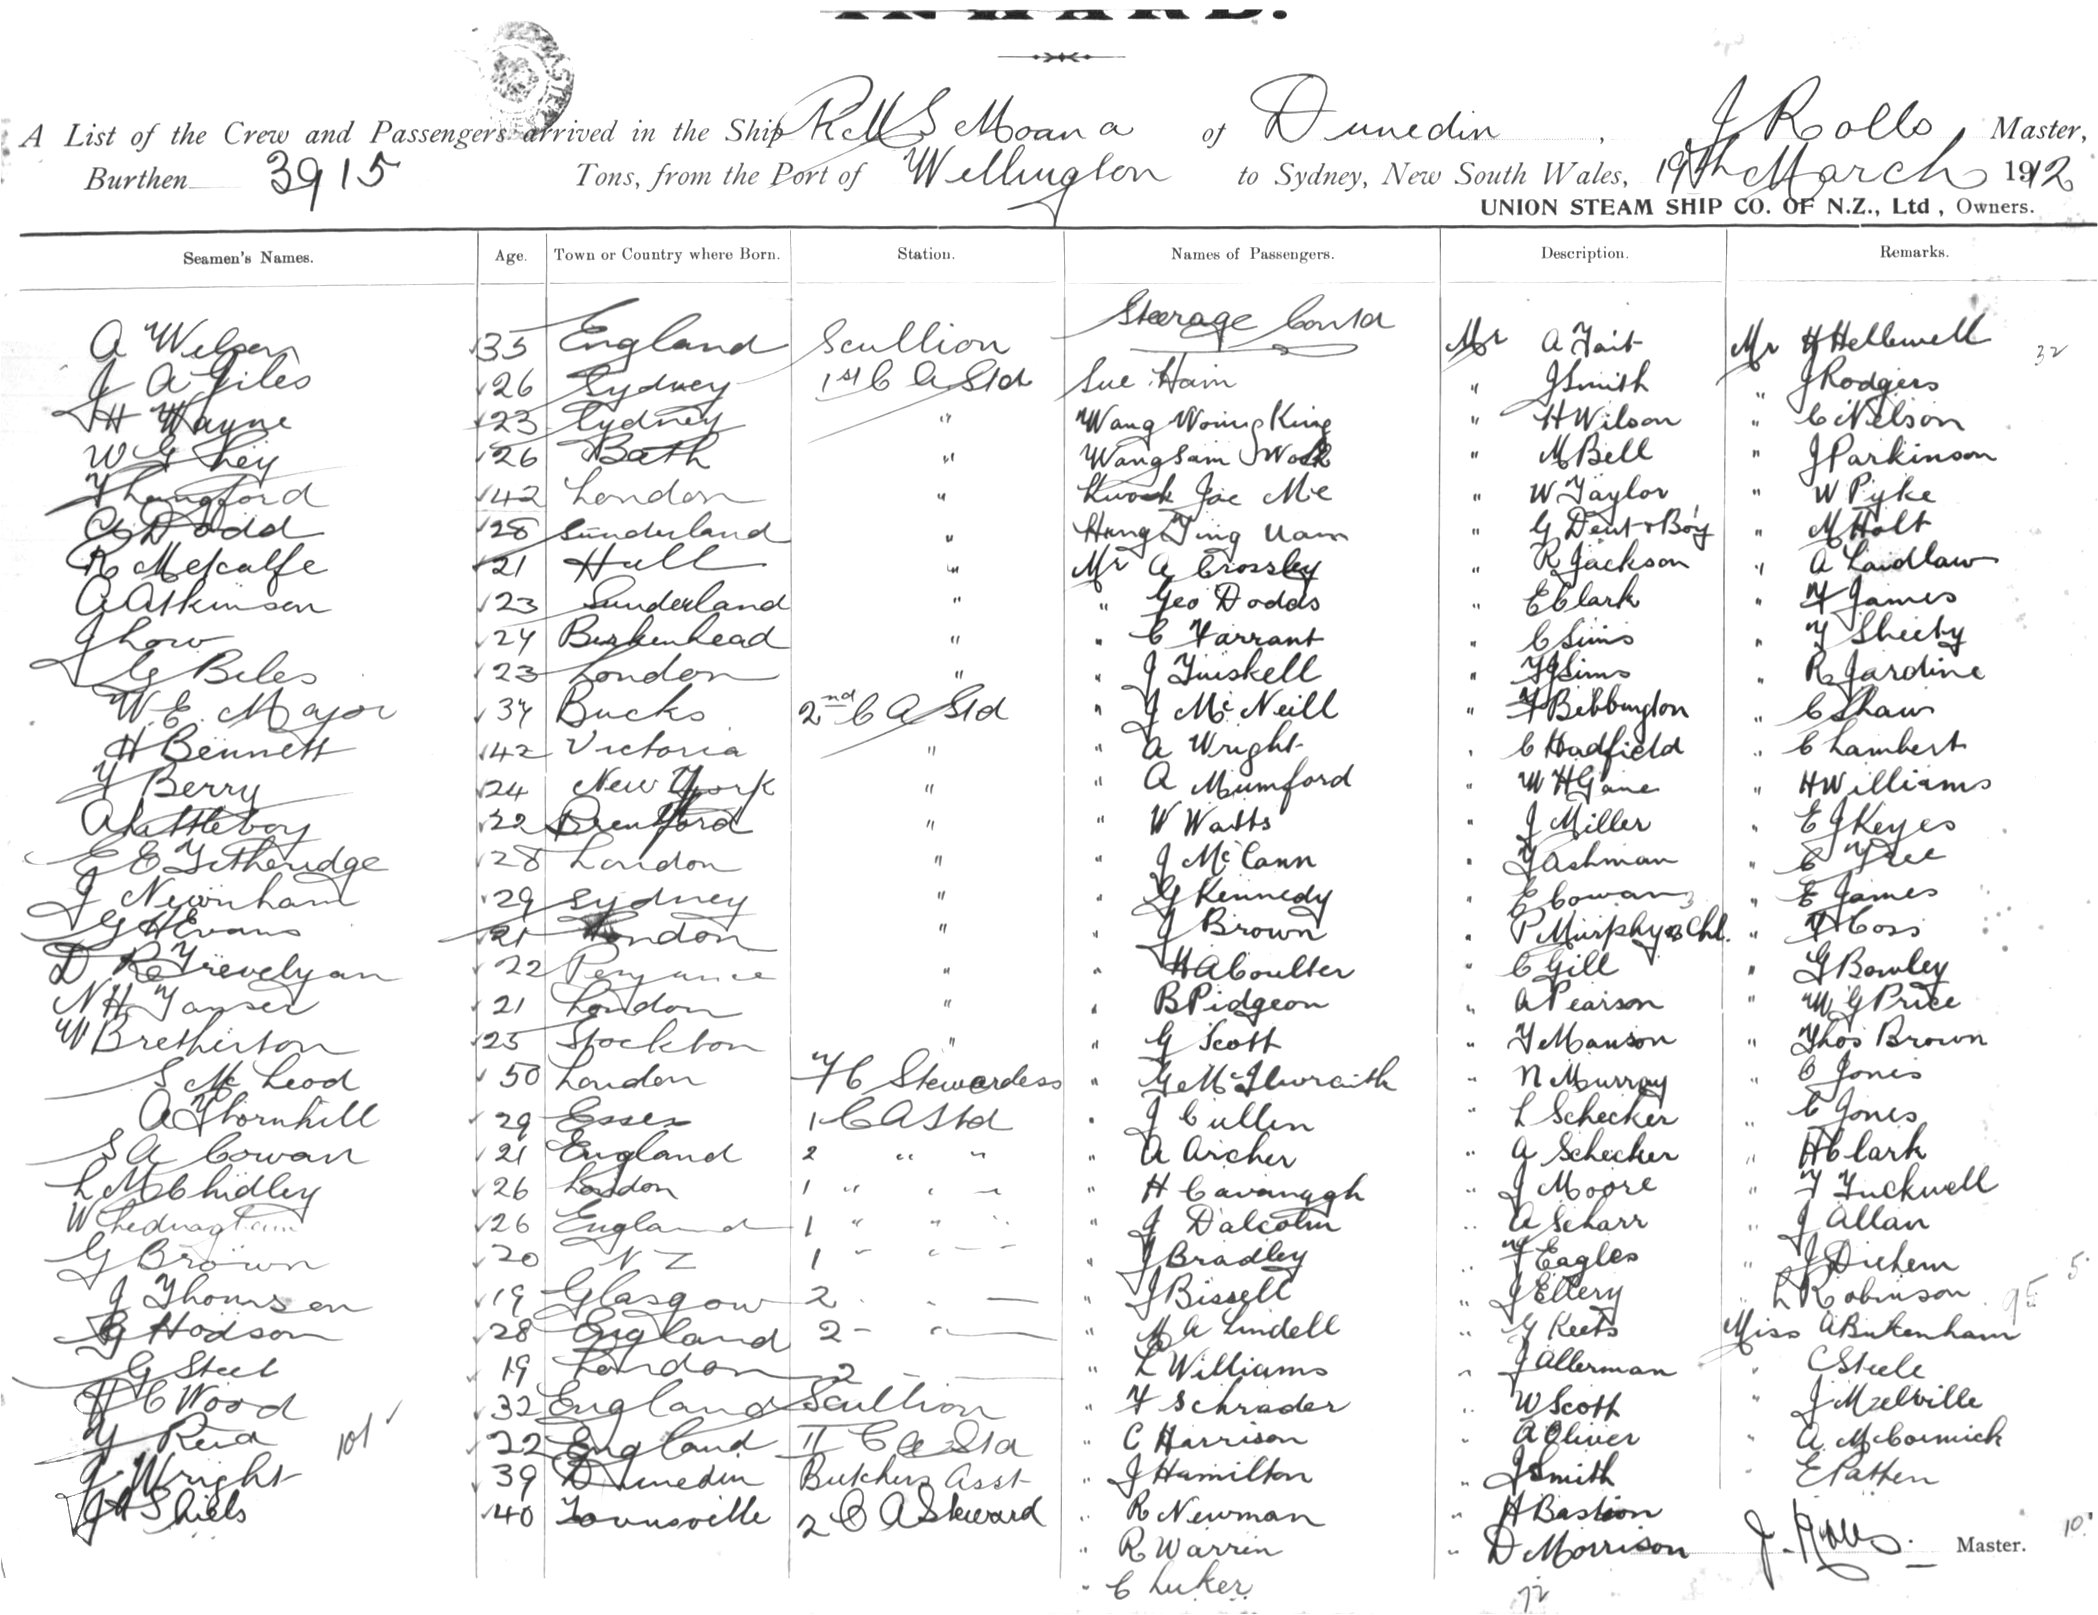 INWARD.
A List of the Crew and Passengers arrived in the Ship RMS Moana of Dunedin, J Rolls Master,
Burthen 3915 Tons, from the Port of Wellington to Sydney, New South Wales, 19th March 1912
UNION STEAM SHIP CO. OF N.Z., Ltd, Owners.
Seamen's Names. Age. Town or Country where Born. Station. Names of Passengers. Description. Remarks.
Steerage Contd
A Wilson 35 England Scullion Mr A Tait Mr H Hellewell 32
J A Giles 26 Sydney 1st C A Std Sue Hain " J Smith " J Rodgers
H Wayne 23 Sydney " Wang Woing King " H Wilson " C Nelson
W G 26 Bath " Wang Sam " M Bell " J Parkinson
Langford 42 London " Kwock Joe Me " W Taylor " W Pyke
C Dodd 28 Sunderland " Hung Ting Uam " G Dent & Boy " M Holt
R Metcalfe 21 Hull " Mr A Crossley " R Jackson " A Laidlaw
A Atkinson 23 Sunderland " " Geo Dodds " E Clark " F James
J Low 24 Birkenhead " " C Farrant " C Sims " T Sheehy
G Beles 23 London " " J Tuiskell " F J Sims " R Jardine
W. E. Major 34 Bucks 2nd C A Std " J McNeill " F Bebbington " C Shaw
H Bennett 42 Victoria " " A Wright " C Hadfield " C Lambert
T Berry 24 New York " " A Mumford " W H Gane " H Williams
A Lattleboy 22 Brentford " " W Watts " J Miller " E J Keyes
E E Titheridge 28 London " " J McCann " T Ashman " C Tree
J Newnham 29 Sydney " " G Kennedy " E Cowan " E James
G H Evans 21 London " " J Brown " P Murphy & Chl. " F Coss
D R Trevelyan 22 Penzance " " H A Coulter " C Gill " G Bowley
N H Tanser 21 London " " B Pidgeon " A Pearson " W G Price
W Bretherton 25 Stockton " " G Scott " T Manson " Thos Brown
S McLeod 50 London F C Stewardess " G McIlwraith " N Murray " C Jones
A Thornhill 29 Essex 1 C A Std " J Cullen " L Schecker " C Jones
S A Cowan 21 England 2 " " " A Archer " A Schecker " H Clark
L M Chidley 26 London 1 " " " H Cavanagh " J Moore " F Tuckwell
W 26 England 1 " " " J Dalcolm " A Scharr " J Allan
G Brown 20 N Z 1 " " " J Bradley " F Eagles " J Dichem 5
J Thomson 19 Glasgow 2 " " J Bissell " J Ellery " L Robinson 95
G Hodson 28 England 2 " " M A Lindell " G Keets Miss A Bukenham
G Steel 19 London 2 " L Williams " J Allerman " C Steele
H C Wood 32 England Scullion " F Schrader " W Scott " J Melville
T Reid 101 22 England II C A Std " C Harrison " A Oliver " A. McCormick
J Wright 39 Dunedin Butchers Asst " J Hamilton " J Smith " E Patten
J A Shiels 40 Townsville 2 C A Steward " R Newman " H Bastion
" R Warren " D Morrison J. Rolls. Master. 10
" C Luker 72